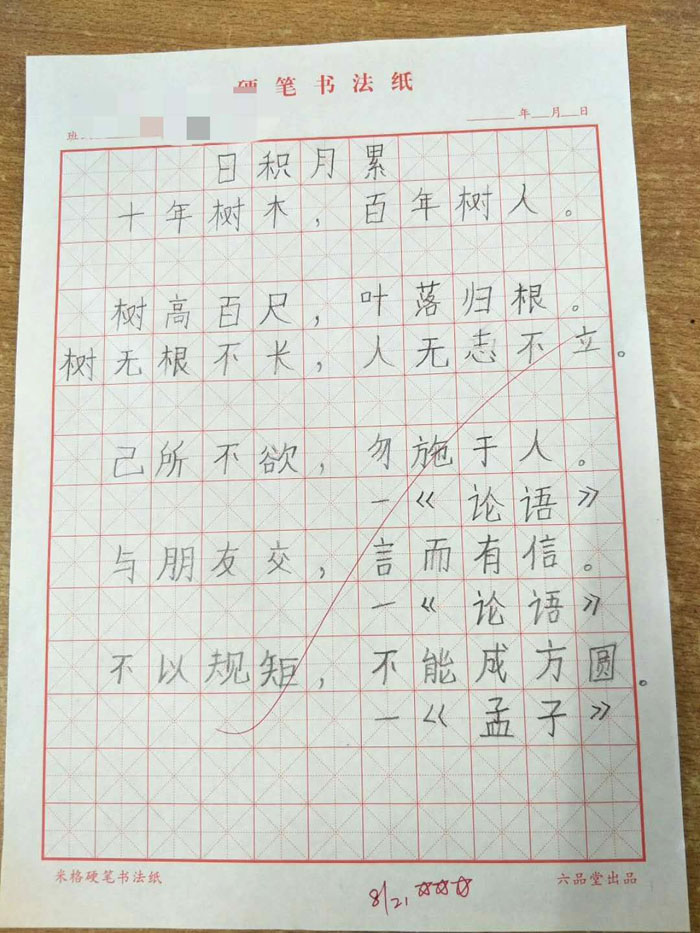 硬笔书法纸
班
年 月 日
日积月累
十年树木，百年树人。
树高百尺，叶落归根。
树无根不长，人无志不立。
己所不欲，勿施于人。
—《论语》
与朋友交，言而有信。
—《论语》
不以规矩，不能成方圆。
—《孟子》
米格硬笔书法纸
六品堂出品
8/21 ☆☆☆